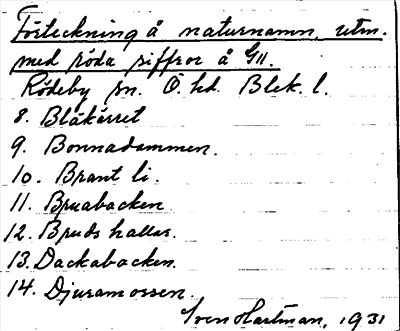 Förteckning å naturnamn, utm.
med röda siffror å G11.
Rödeby sn. Ö. hd. Blek. l.
8. Blåkärret
9. Bonnadammen.
10. Brant li.
11. Bruabacken
12. Bruds hallar.
13. Dackabacken.
14. Djuramossen.
Sven Hartman, 1931